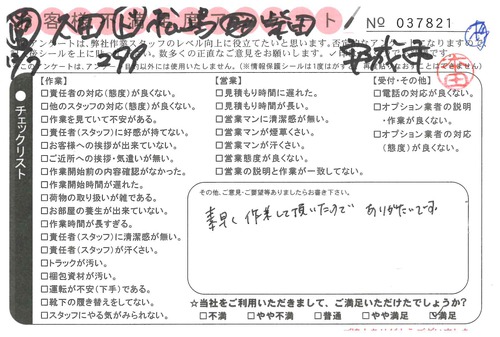 No 037821
アンケートは、弊社作業スタッフのレベル向上に役立てたいと思います。
このアンケートは、
チェックリスト
【作業】
□責任者の対応(態度)が良くない。
□他のスタッフの対応(態度)が良くない。
□作業を見ていて不安がある。
□責任者(スタッフ)に好感が持てない。
□お客様への挨拶が出来ていない。
□ご近所への挨拶・気遣いが無い。
□作業開始前の内容確認がなかった。
□作業開始時間が遅れた。
□荷物の取り扱いが雑である。
□お部屋の養生が出来ていない。
□作業時間が長すぎる。
□責任者(スタッフ)に清潔感が無い。
□責任者(スタッフ)が汗くさい。
□トラックが汚い。
□梱包資材が汚い。
□運転が不安(下手)である。
□靴下の履き替えをしてない。
□スタッフにやる気がみられない。
【営業】
□見積もり時間に遅れた。
□見積もり時間が長い。
□営業マンに清潔感が無い。
□営業マンが煙草くさい。
□営業マンが汗くさい。
□営業態度が良くない。
□営業の説明と作業が一致してない。
【受付・その他】
□電話の対応が良くない。
□オプション業者の説明
・作業が良くない。
□オプション業者の対応
(態度)が良くない。
その他、ご意見・ご要望等ありましたらお書き下さい。
素早く作業して頂いたので ありがたいです
☆当社をご利用いただきまして、ご満足いただけたでしょうか?
□不満 □やや不満 □普通 □やや満足 ☑満足